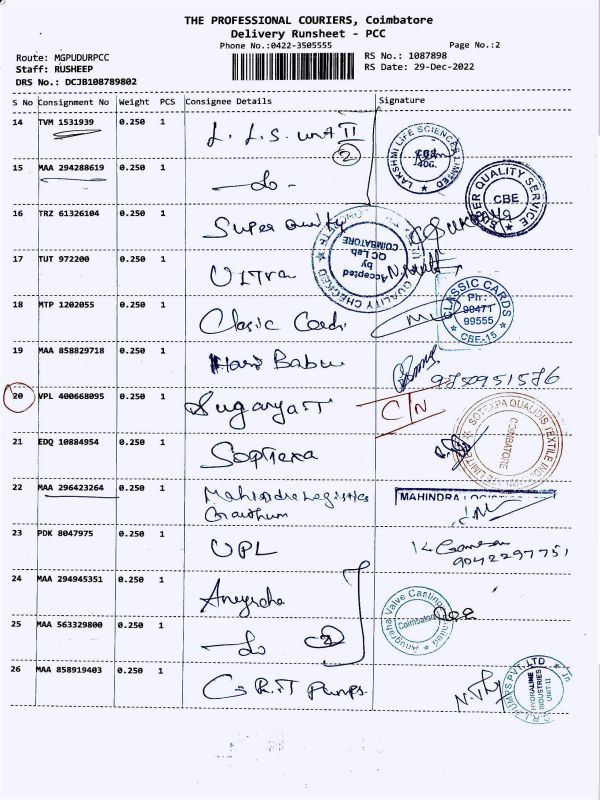 THE PROFESSIONAL COURIERS, Coimbatore
Delivery Runsheet - PCC
Phone No.:0422-3505555 Page No.:2
Route: MGPUDURPCC RS No.: 1087898
Staff: RUSHEEP RS Date: 29-Dec-2022
DRS No.: DCJB108789802
S No Consignment No Weight PCS Consignee Details Signature
14 TVM 1531939 0.250 1 L. L. S. unit II
2
LAKSHMI LIFE SCIENCES LIMITED
15 MAA 294288619 0.250 1 -do-
QUALITY SERVICE
CBE
16 TRZ 61326104 0.250 1 Super quality
QUALITY CHECKED
Accepted
by
QC Lab
COIMBATORE
17 TUT 972200 0.250 1 Ultra
18 MTP 1202055 0.250 1 Clasic Cards
CLASSIC CARDS
Ph :
99555
CBE-15
19 MAA 858829718 0.250 1 Hari Babu
9750951576
20 VPL 400668095 0.250 1 C/N
21 EDQ 10884954 0.250 1 Soptexa
COIMBATORE
22 MAA 296423264 0.250 1 Mahindra Logistics
MAHINDRA LOGISTICS
23 PDK 8047975 0.250 1 UPL
K Ganesan
9042297751
24 MAA 294945351 0.250 1 Anugraha
Anugraha Valve Castings Limited
Coimbatore
25 MAA 563329800 0.250 1 -do- 2
26 MAA 858919403 0.250 1 C.R.I Pumps
PUMPS PVT. LTD
HYDRALINE
INDUSTRIES
UNIT-II